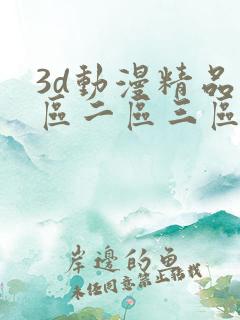 3d動漫精品
區二區三區
岸邊的魚
未經同意禁止轉載